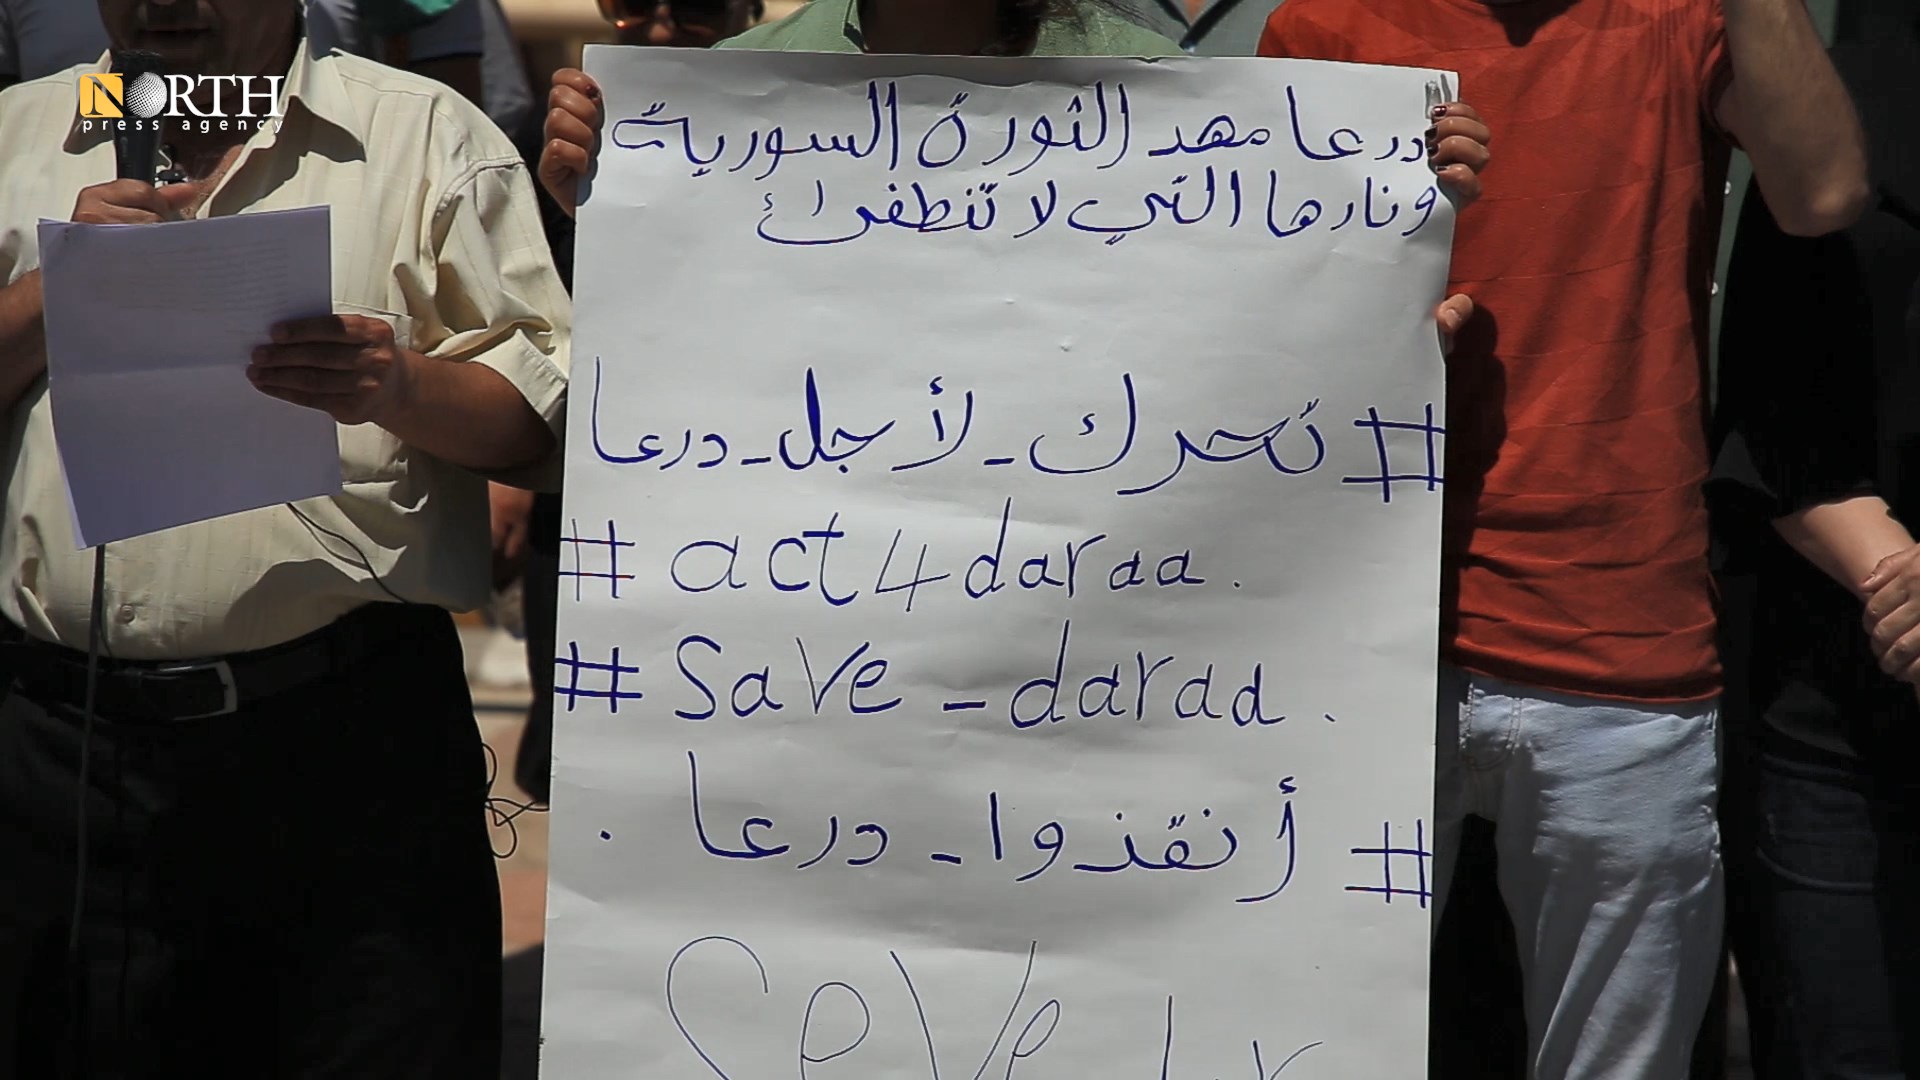 NORTH
press agency
درعا مهد الثورة السورية
ونارها التي لا تنطفئ
#تحرك_لأجل_درعا
#act4daraa.
#Save_daraa.
#أنقذوا_درعا.